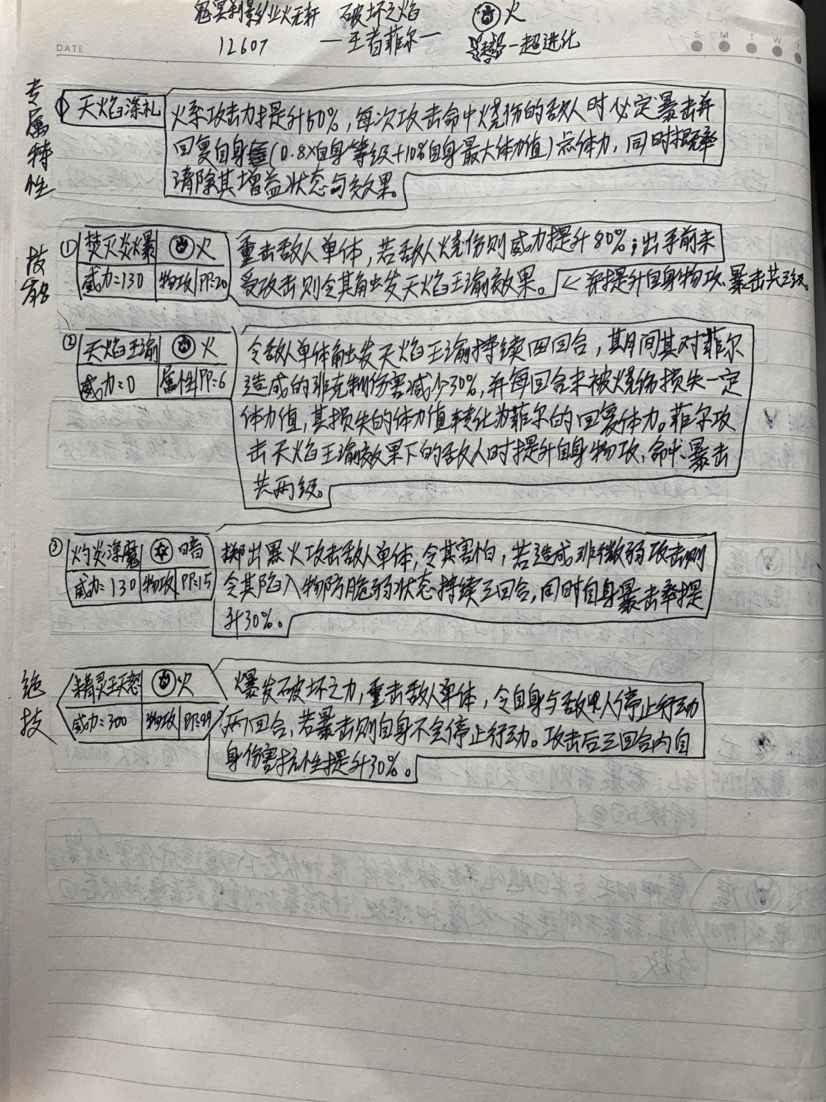 破坏之焰 火
12607 —王者菲尔— 超进化
DATE
S M T W T
专属特性
① 天焰涤礼
火系攻击力提升50%，每次攻击命中烧伤的敌人时必定暴击并
回复自身(0.8×自身等级+10%自身最大体力值)点体力，同时概率
清除其增益状态与效果。
技能
① 焚灭炎爆 火
威力=130 物攻 PP=20
重击敌人单体，若敌人烧伤则威力提升80%；出手前未
受攻击则令其触发天焰王谕效果。 ← 并提升自身物攻、暴击共三级。
② 天焰王谕 火
威力=0 属性 PP=6
令敌人单体触发天焰王谕持续四回合，其间其对菲尔
造成的非克制伤害减少30%，并每回合末被烧伤损失一定
体力值，其损失的体力值转化为菲尔的回复体力。菲尔攻
击天焰王谕效果下的敌人时提升自身物攻、命中、暴击
共两级。
③ 灼炎涤魔 暗
威力=130 物攻 PP=15
掷出黑火攻击敌人单体，令其害怕，若造成非微弱攻击则
令其陷入物防脆弱状态持续三回合，同时自身暴击率提
升30%。
绝技
精灵王天怒 火
威力=300 物攻 PP=99
爆发破坏之力，重击敌人单体，令自身与敌人停止行动
两回合，若暴击则自身不会停止行动。攻击后三回合内自
身伤害抗性提升30%。